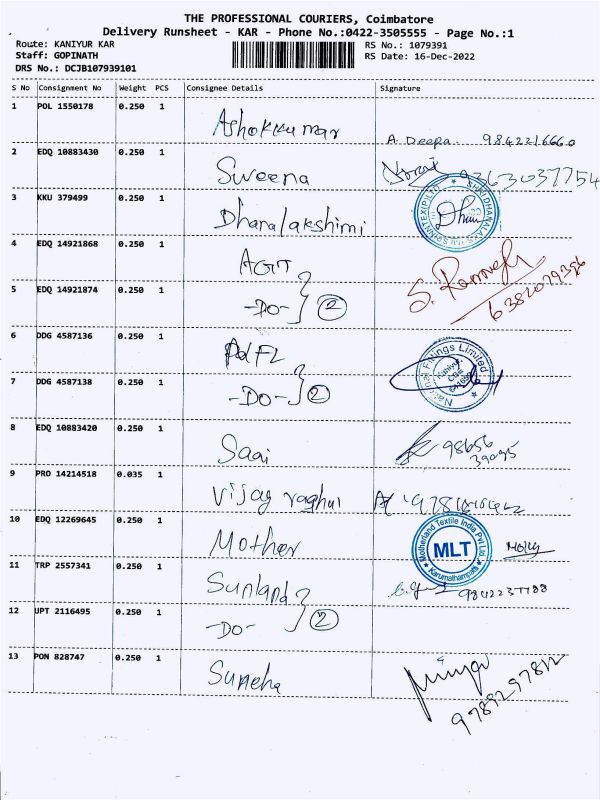 THE PROFESSIONAL COURIERS, Coimbatore
Delivery Runsheet - KAR - Phone No.:0422-3505555 - Page No.:1
Route: KANIYUR KAR
Staff: GOPINATH
DRS No.: DCJB107939101
RS No.: 1079391
RS Date: 16-Dec-2022
S No Consignment No Weight PCS Consignee Details Signature
1 POL 1550178 0.250 1 Ashokkumar A. Deepa. 9842216660
2 EDQ 10883430 0.250 1 Sweena 9363037754
3 KKU 379499 0.250 1 Dhanalakshimi
4 EDQ 14921868 0.250 1 AGT
5 EDQ 14921874 0.250 1 -DO- 2 6382079386
6 DDG 4587136 0.250 1 National Fittings Limited
7 DDG 4587138 0.250 1 -DO- 2
8 EDQ 10883420 0.250 1 Saai 98656
39095
9 PRO 14214518 0.035 1 Vijay raghul
10 EDQ 12269645 0.250 1 Mother Motherland Textile India Pvt Ltd. MLT Karumathampatti
11 TRP 2557341 0.250 1 Sunland 9842237788
12 UPT 2116495 0.250 1 -DO- 2
13 PON 828747 0.250 1 Sumeha 9789297812